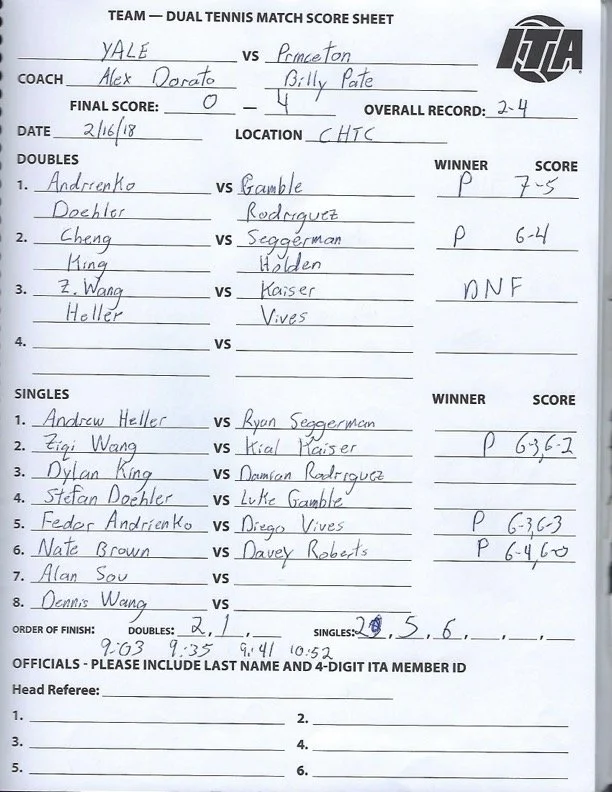 TEAM — DUAL TENNIS MATCH SCORE SHEET
ITA
YALE VS Princeton
COACH Alex Dorato Billy Pate
FINAL SCORE: 0 — 4 OVERALL RECORD: 2-4
DATE 2/16/18 LOCATION CHTC
DOUBLES WINNER SCORE
1. Andrienko VS Gamble P 7-5
Doehler Rodriguez
2. Cheng VS Seggerman P 6-4
King Holden
3. Z. Wang VS Kaiser DNF
Heller Vives
4. VS
SINGLES WINNER SCORE
1. Andrew Heller VS Ryan Seggerman
2. Ziqi Wang VS Kial Kaiser P 6-3,6-2
3. Dylan King VS Damian Rodriguez
4. Stefan Doehler VS Luke Gamble
5. Fedor Andrienko VS Diego Vives P 6-3,6-3
6. Nate Brown VS Davey Roberts P 6-4,6-0
7. Alan Sou VS
8. Dennis Wang VS
ORDER OF FINISH: DOUBLES: 2, 1, SINGLES: 2, 5, 6, , ,
9:03 9:35 9:41 10:52
OFFICIALS - PLEASE INCLUDE LAST NAME AND 4-DIGIT ITA MEMBER ID
Head Referee:
1. 2.
3. 4.
5. 6.